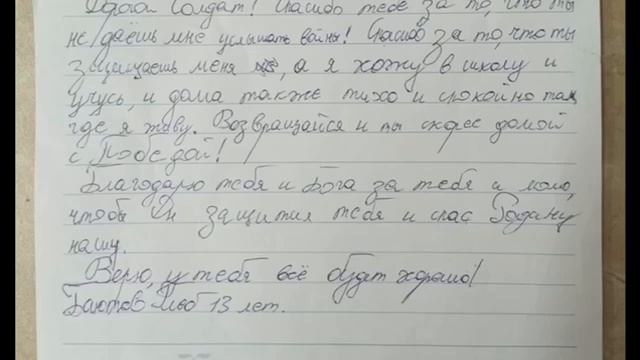 Дорогой Солдат! Спасибо тебе за то, что ты
не даёшь мне услышать войны! Спасибо за то, что ты
защищаешь меня, а я хожу в школу и
учусь, и дома также тихо и спокойно там,
где я живу. Возвращайся и ты скорее домой
с Победой!
Благодарю тебя и Бога за тебя и молю,
чтобы Он защитил тебя и спас Родину
нашу.
Верю, у тебя всё будет хорошо!
13 лет.